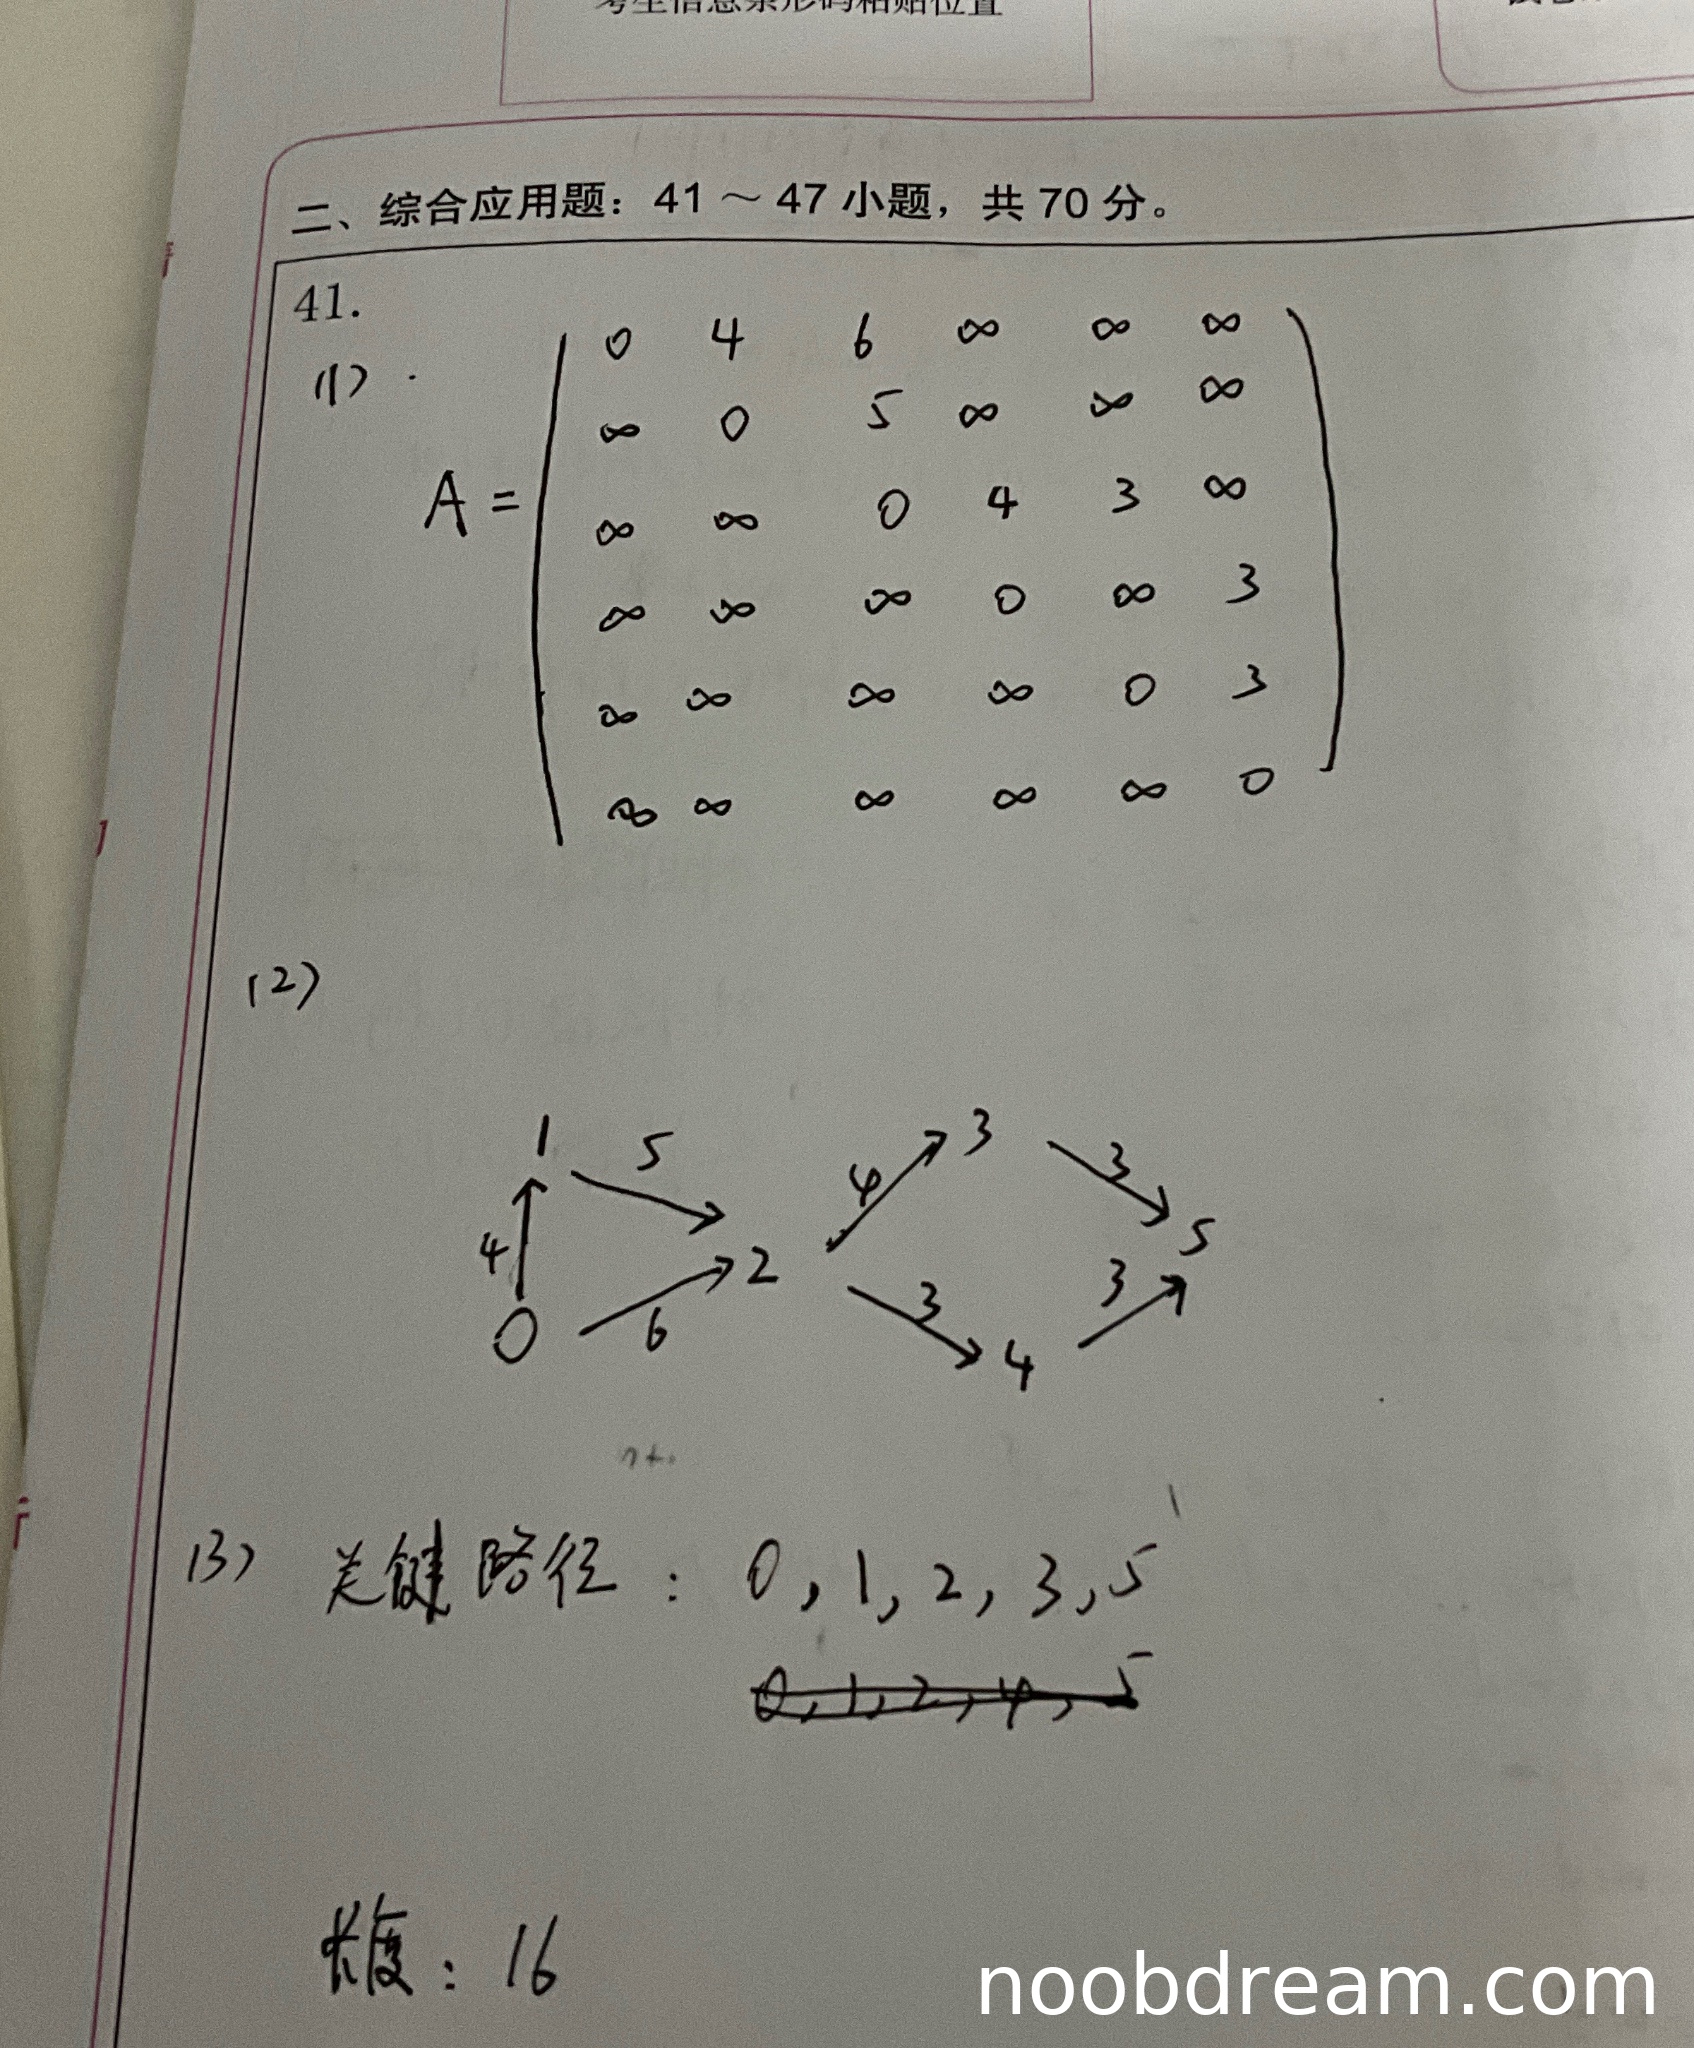 考生信息条形码粘贴位置
二、综合应用题：41 ～ 47 小题，共 70 分。
41.
(1)
0 4 6 ∞ ∞ ∞
∞ 0 5 ∞ ∞ ∞
A =
∞ ∞ 0 4 3 ∞
∞ ∞ ∞ 0 ∞ 3
∞ ∞ ∞ ∞ 0 3
∞ ∞ ∞ ∞ ∞ 0
(2)
1 5 4 3 3
4 2 5
0 6 3 4 3
(3) 关键路径：0, 1, 2, 3, 5
0, 1, 2, 4, 5
长度：16
noobdream.com